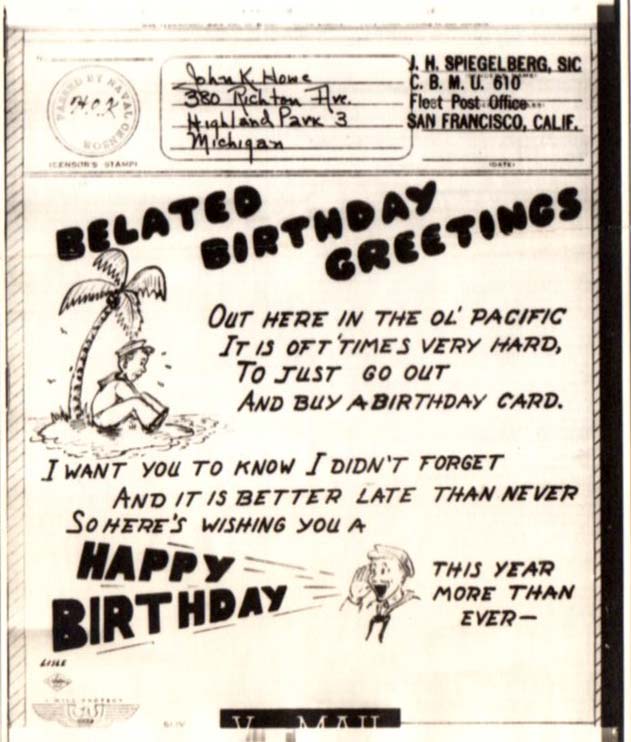 PASSED BY NAVAL
CENSOR
(CENSOR'S STAMP)
John K. Howe
380 Richton Ave.
Highland Park 3
Michigan
J. H. SPIEGELBERG, SIC
C. B. M. U. 610
Fleet Post Office
SAN FRANCISCO, CALIF.
(DATE)
BELATED
BIRTHDAY
GREETINGS
OUT HERE IN THE OL' PACIFIC
IT IS OFT'TIMES VERY HARD,
TO JUST GO OUT
AND BUY A BIRTHDAY CARD.
I WANT YOU TO KNOW I DIDN'T FORGET
AND IT IS BETTER LATE THAN NEVER
SO HERE'S WISHING YOU A
HAPPY
BIRTHDAY
THIS YEAR
MORE THAN
EVER—
LISLE
V - MAIL